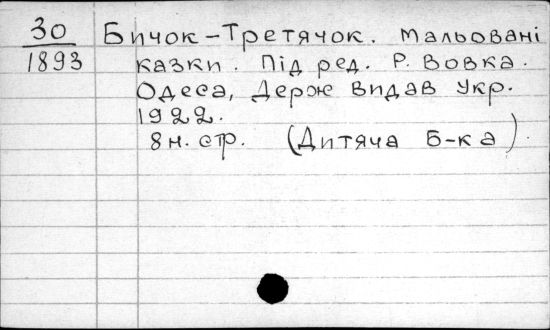 30
1893
Бичок-Третячок. Мальовані
казки. Під ред. Р. Вовка.
Одеса, Держ Видав Укр.
1922.
8 н. стр. (Дитяча Б-ка).